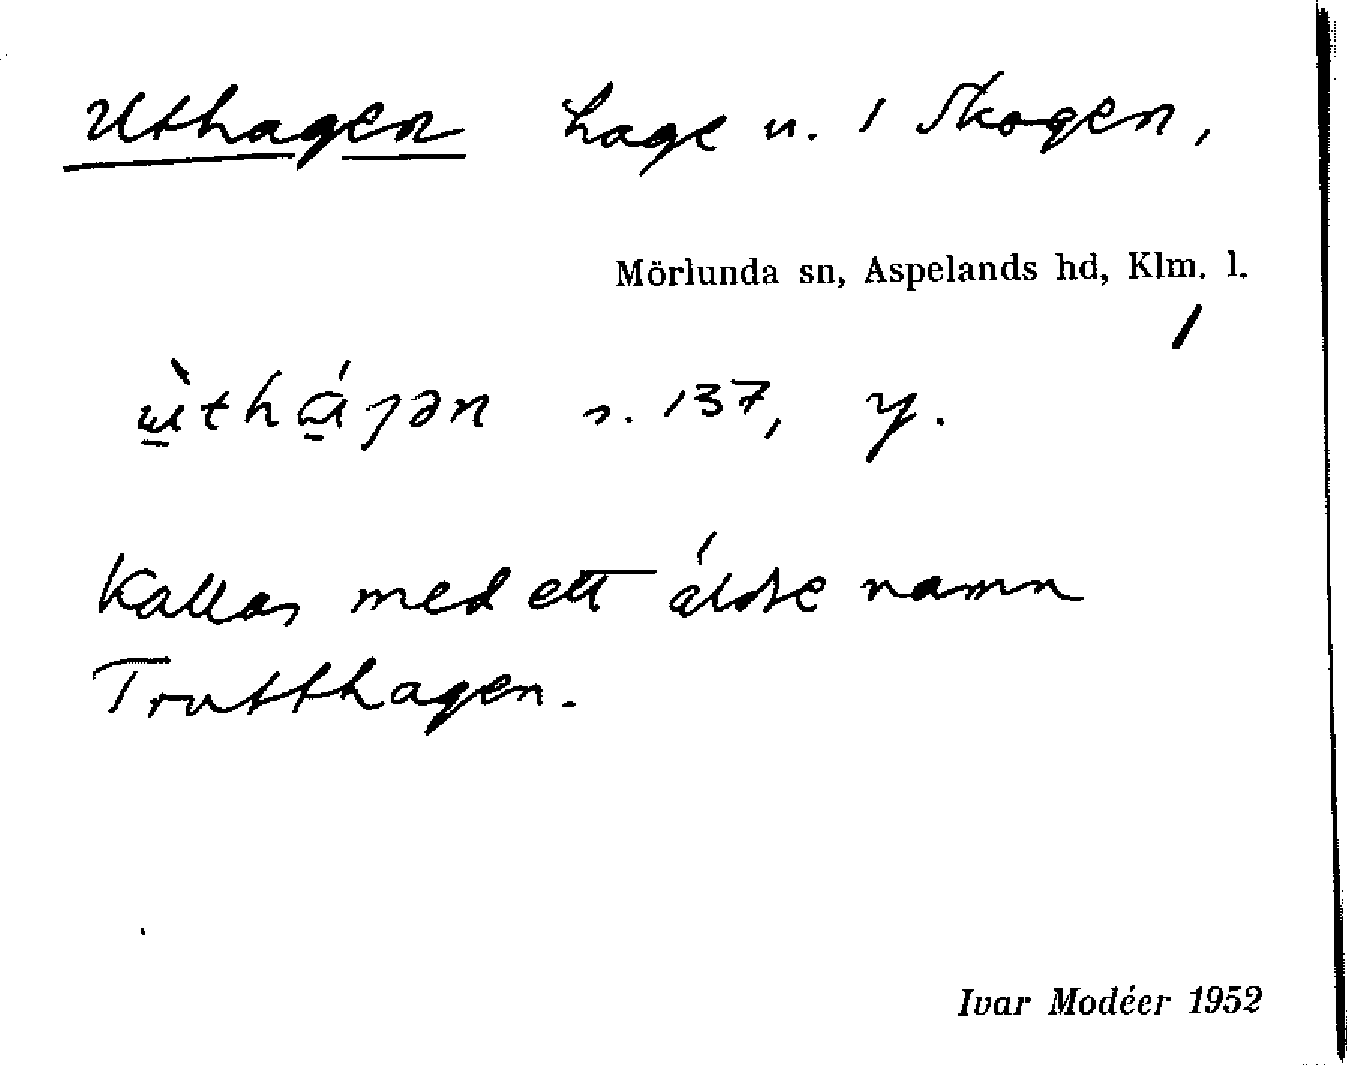 Uthagen hage u. 1 Skogen,
Mörlunda sn, Aspelands hd, Klm. l.
s. 137, y.
Kallas med ett äldre namn
Trutthagen.
Ivar Modéer 1952